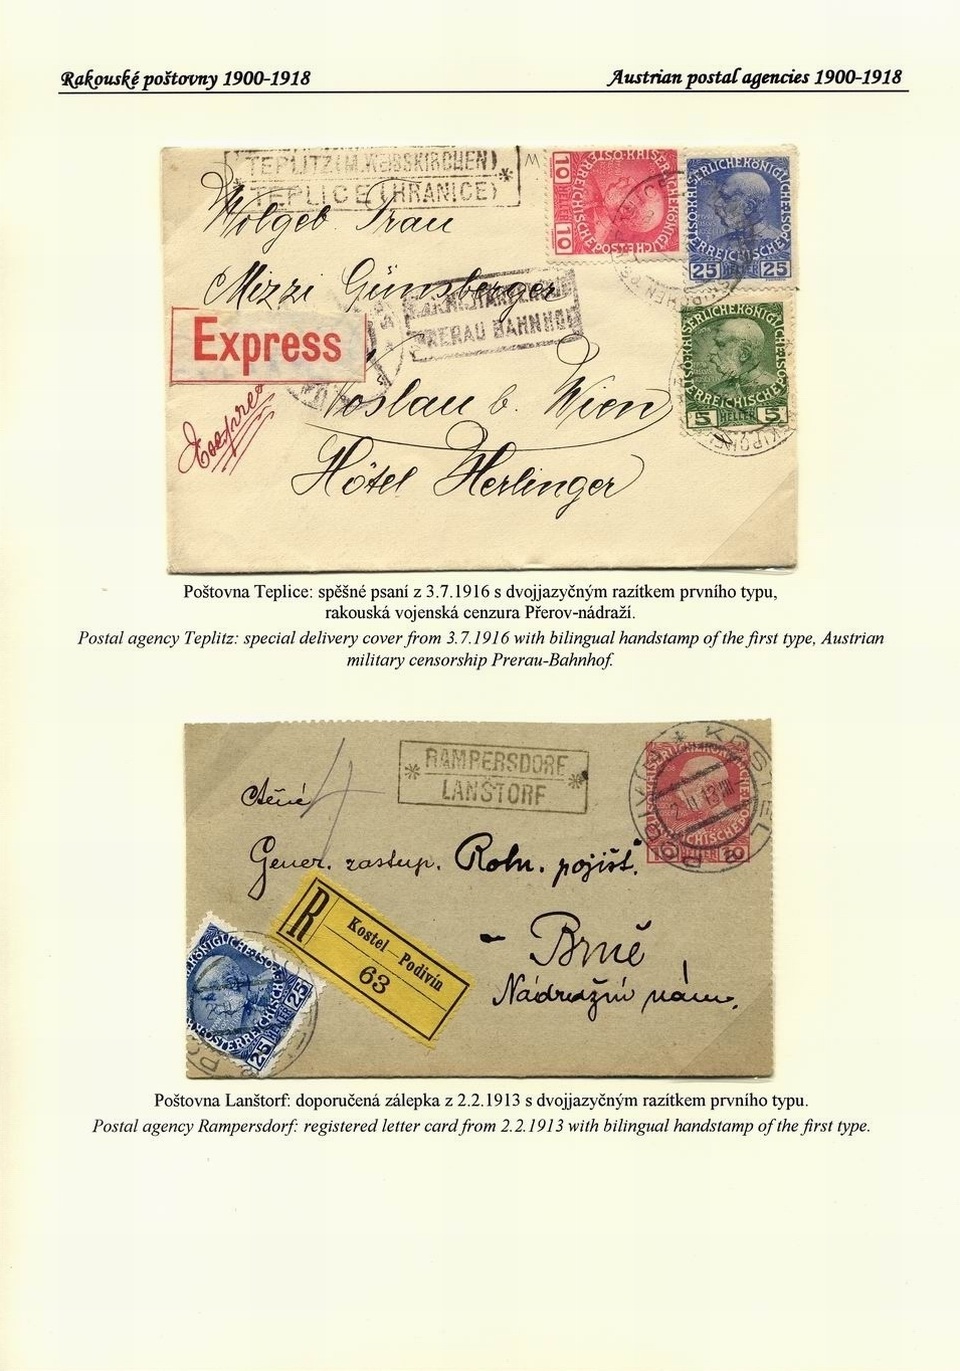 Rakouské poštovny 1900-1918
Austrian postal agencies 1900-1918
TEPLITZ (M. WEISSKIRCHEN)
TEPLICE (HRANICE)
Wolgeb. Frau
Mizzi Günsberger
PRERAU BAHNHOF
Express
Express
Voslau b. Wien
Hôtel Herlinger
10 HELLER 10
25 HELLER 25
5 HELLER 5
Poštovna Teplice: spěšné psaní z 3.7.1916 s dvojjazyčným razítkem prvního typu,
rakouská vojenská cenzura Přerov-nádraží.
Postal agency Teplitz: special delivery cover from 3.7.1916 with bilingual handstamp of the first type, Austrian
military censorship Prerau-Bahnhof.
RAMPERSDORF
LANŠTORF
KOSTEL
PODIVÍN
2 II 13
10 HELLER 10
Ctěné
Gener. zastup. Roln. pojišť.
Brně
Nádražní nám.
R
Kostel — Podivín
63
25 HELLER 25
Poštovna Lanštorf: doporučená zálepka z 2.2.1913 s dvojjazyčným razítkem prvního typu.
Postal agency Rampersdorf: registered letter card from 2.2.1913 with bilingual handstamp of the first type.